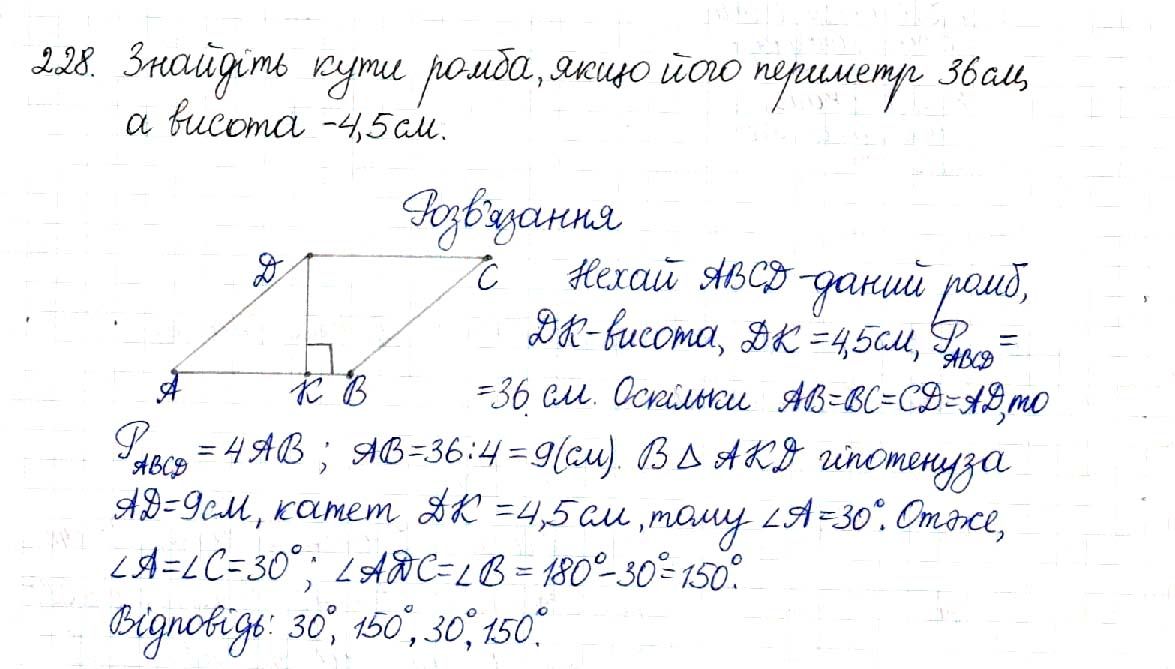 228. Знайдіть кути ромба, якщо його периметр 36 см,
а висота -4,5 см.
Розв'язання
D C
A K B
Нехай ABCD - даний ромб,
DK - висота, DK = 4,5 см, P_ABCD =
= 36 см. Оскільки AB=BC=CD=AD, то
P_ABCD = 4AB ; AB=36:4=9(см). В △ AKD гіпотенуза
AD=9см, катет DK = 4,5 см, тому ∠A=30°. Отже,
∠A=∠C=30°; ∠ADC=∠B = 180°-30°=150°.
Відповідь: 30°, 150°, 30°, 150°.